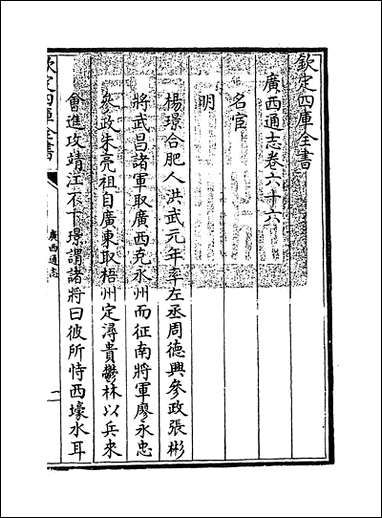 欽定四庫全書
廣西通志卷六十六
名宦
明
楊璟合肥人洪武元年率左丞周德興參政張彬
將武昌諸軍取廣西克永州而征南將軍廖永忠
參政朱亮祖自廣東取梧州定潯貴鬱林以兵來
會進攻靖江不下璟謂諸將曰彼所恃西壕水耳
欽定四庫全書
廣西通志
一